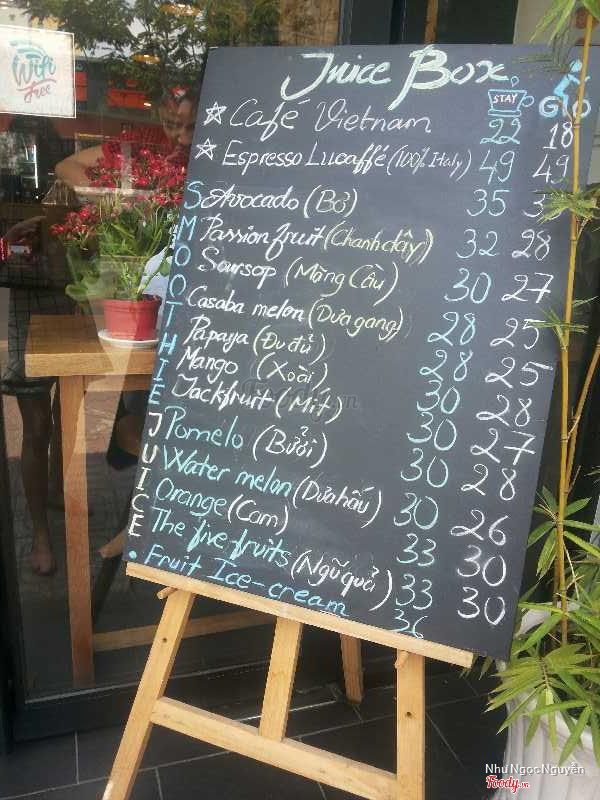 Wifi
free
Juice Box
STAY GO
Café Vietnam 22 18
Espresso Lucaffé (100% Italy) 49 49
SMOOTHIE
Avocado (Bơ) 35
Passion fruit (Chanh dây) 32 28
Soursop (Mãng Cầu) 30 27
Casaba melon (Dưa gang) 28 25
Papaya (Đu đủ) 28 25
Mango (Xoài) 30 28
Jackfruit (Mít) 30 27
JUICE
Pomelo (Bưởi) 30 28
Water melon (Dưa hấu) 30 26
Orange (Cam) 33 30
The five fruits (Ngũ quả) 33 30
• Fruit Ice-cream 36
Foody.vn
Như Ngọc Nguyễn
Foody.vn